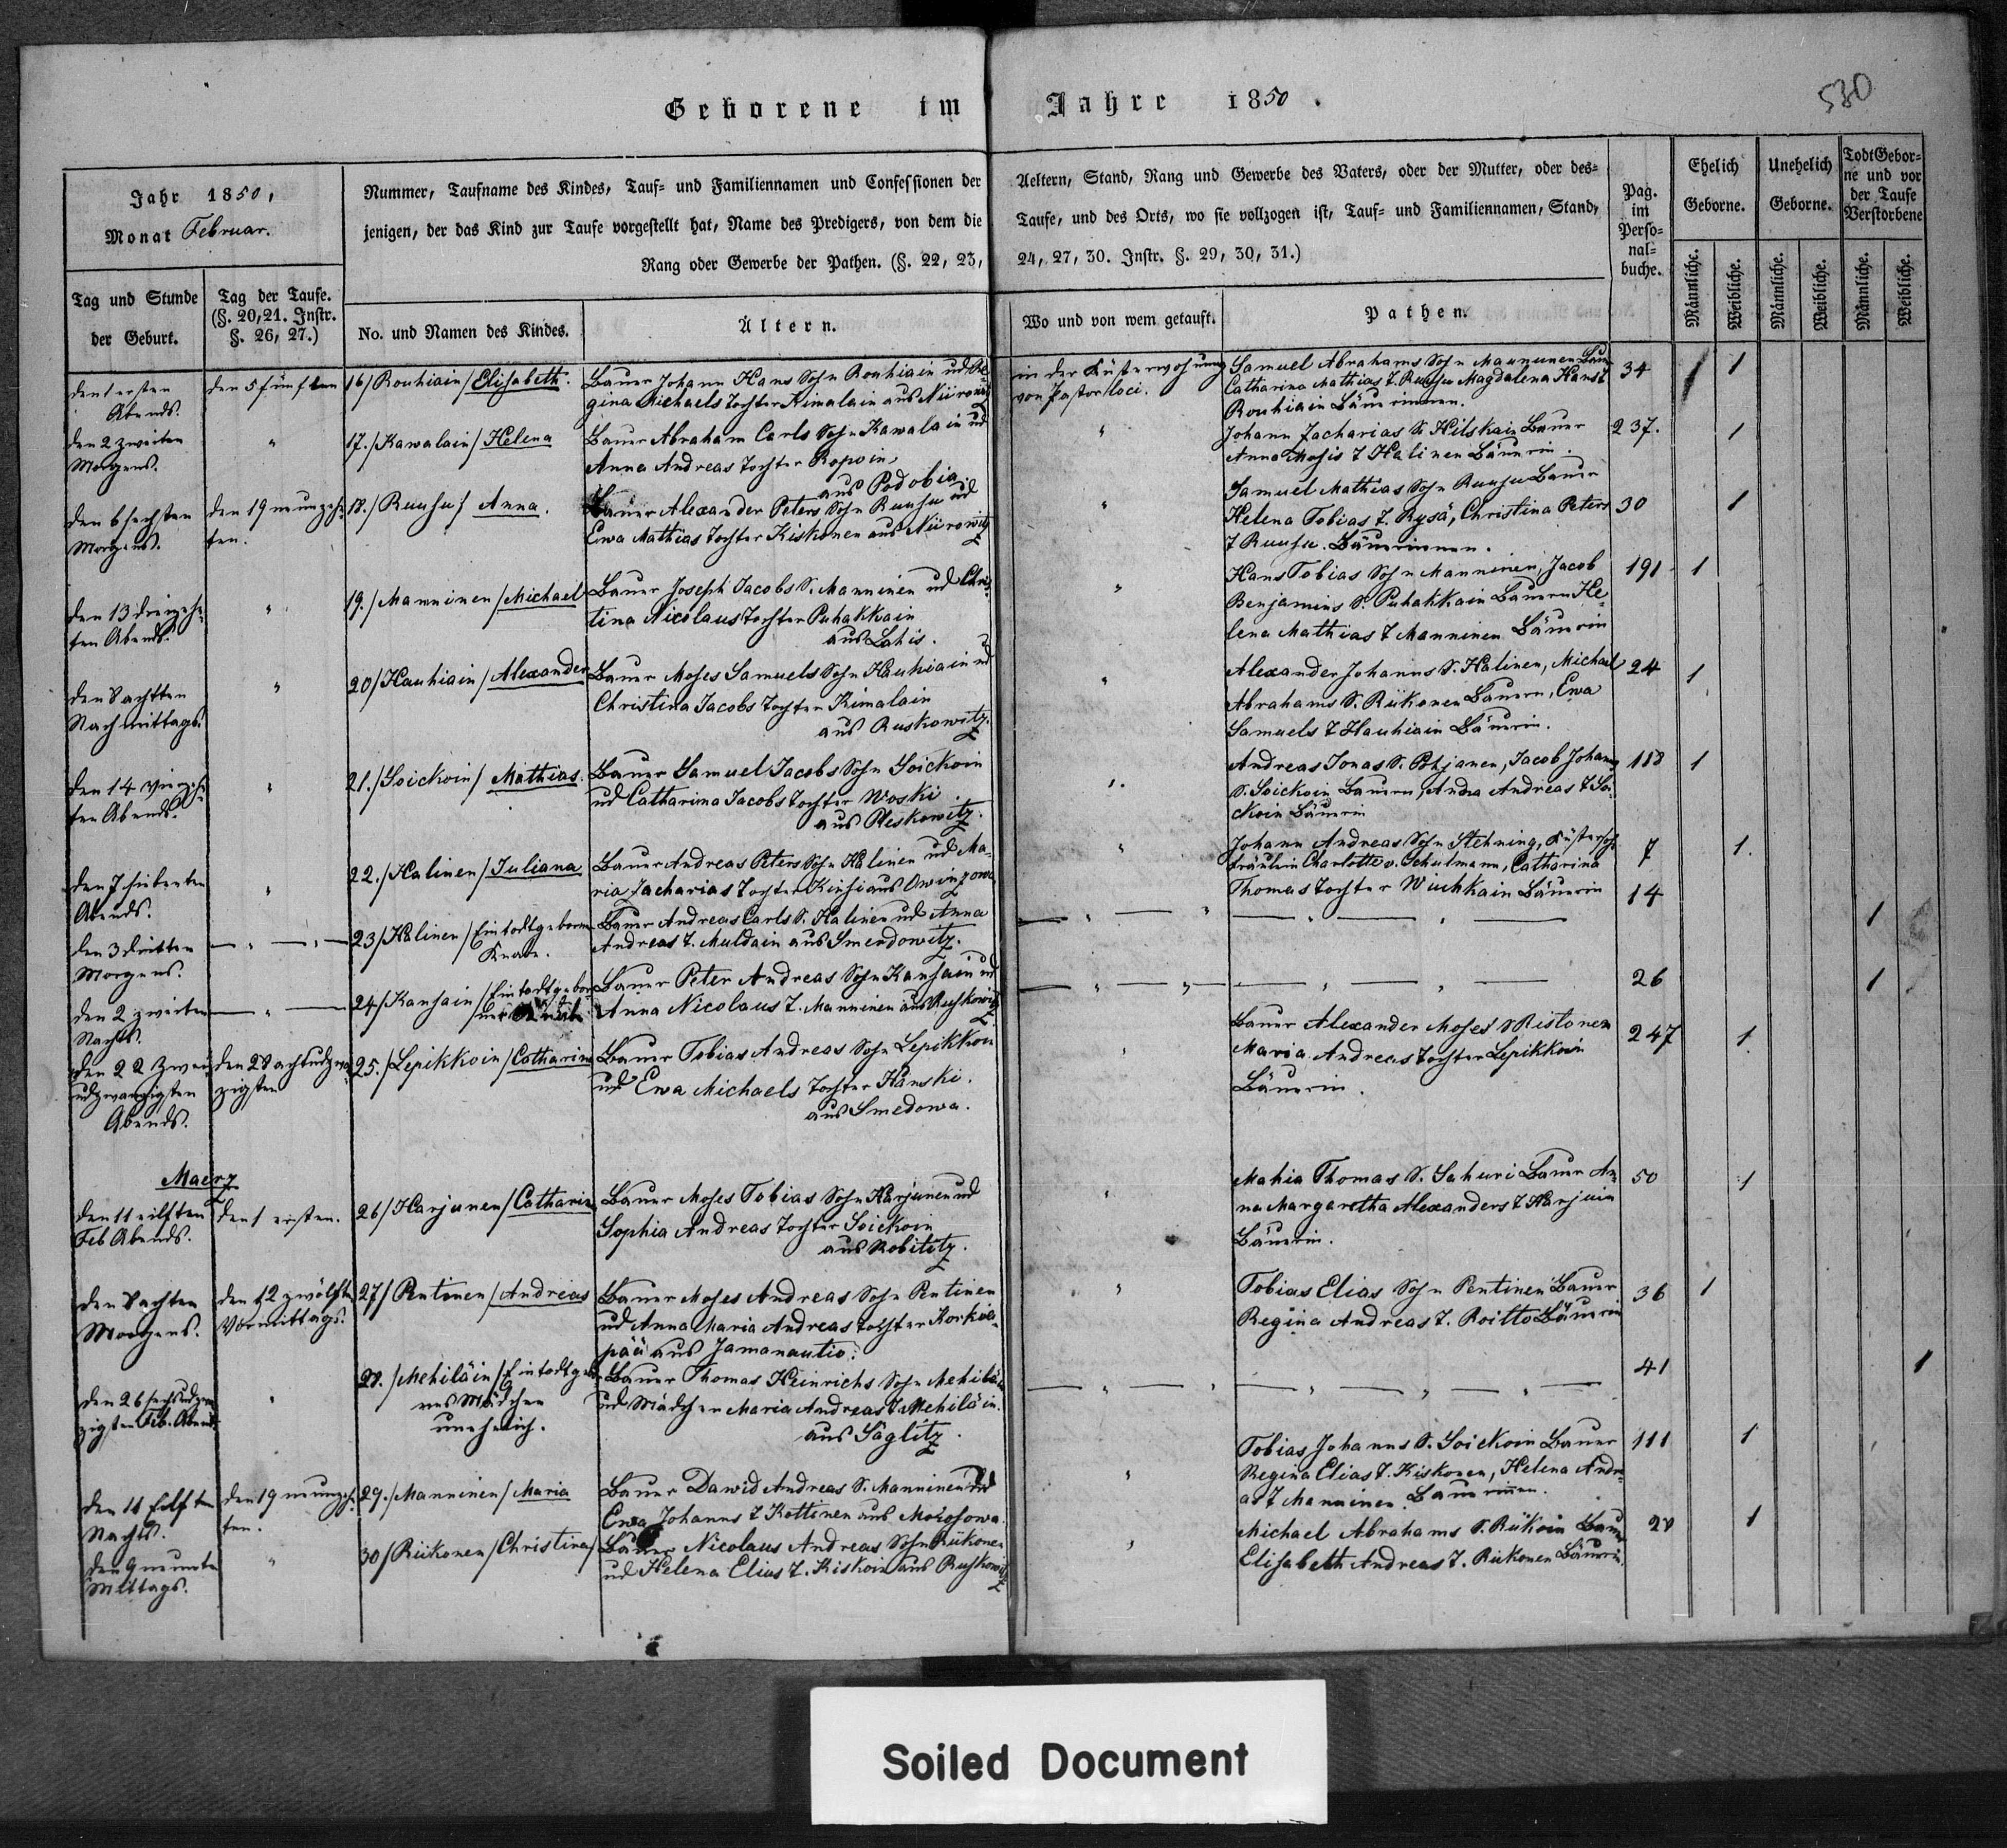 Geborene im Jahre 1850.
530
Jahr 1850,
Monat Februar.
Nummer, Taufname des Kindes, Tauf- und Familiennamen und Confessionen der
jenigen, der das Kind zur Taufe vorgestellt hat, Name des Predigers, von dem die
Rang oder Gewerbe der Pathen. (§. 22, 23,
Aeltern, Stand, Rang und Gewerbe des Vaters, oder der Mutter, oder des-
Taufe, und des Orts, wo sie vollzogen ist, Tauf- und Familiennamen, Stand,
24, 27, 30. Instr. §. 29, 30, 31.)
Pag.
im
Perso-
nal-
buche.
Ehelich
Geborne.
Unehelich
Geborne.
Todt Gebor-
ne und vor
der Taufe
Verstorbene
Männliche.
Weibliche.
Männliche.
Weibliche.
Männliche.
Weibliche.
Tag und Stunde
der Geburt.
Tag der Taufe.
(§. 20, 21. Instr.
§. 26, 27.)
No. und Namen des Kindes.
Ältern.
Wo und von wem getauft.
Pathen.
den 1 ersten
Abends.
den 5 fünften
16/ Rouhiain/ Elisabeth.
Bauer Johann Hans Sohn Rouhiain ud Re-
gina Michaels Tochter Kimalain aus
in der Küsterwohnung
von Pastor loci.
Samuel Abrahams Sohn Maununen Bauer
Catharina Mathias T. Ruusu Magdalena Hans T
Rouhiain Bäuerinnen.
34
1
den 2 zweiten
Morgens.
"
17./ Kawalain/ Helena
Bauer Abraham Carls Sohn Kawalain ud
Anna Andreas Tochter Ropoin
aus Podobia
"
Johann Zacharias S. Hilskain Bauer
Anna Mosis T Halinen Bäuerin.
237.
1
den 6 sechsten
Morgens.
den 19 neunzehn-
ten.
18./ Ruusu/ Anna.
Bauer Alexander Peters Sohn Ruusu ud
Ewa Mathias Tochter Kiskonen aus
"
Samuel Mathias Sohn Ruusu Bauer
Helena Tobias T. Rysä, Christina Peters
T Ruusu. Bäuerinnen.
30
1
den 13 dreizehn-
ten Abends.
"
19./ Manninen/ Michael
Bauer Joseph Jacobs S. Manninen ud Chris-
tina Nicolaus Tochter Puhakkain
aus Lahis.
"
Hans Tobias Sohn Manninen, Jacob
Benjamins S. Puhakkain Bauern He-
lena Mathias T Manninen Bäuerin
191
1
den 8 achten
Nachmittags.
"
20/ Hauhiain/ Alexander
Bauer Moses Samuels Sohn Hauhiain ud
Christina Jacobs Tochter Kimalain
aus Ruskowitz.
"
Alexander Johanns S. Halinen, Michael
Abrahams S. Riikonen Bauern, Ewa
Samuels T Hauhiain Bäuerin.
24
1
den 14 vierzehn-
ten Abends.
"
21./ Soickoin/ Mathias.
Bauer Samuel Jacobs Sohn Soickoin
ud Catharina Jacobs Tochter Woski
aus Pleskowitz.
"
Andreas Jonas S. Pohjanen, Jacob Johanns
S. Soickoin Bauern, Anna Andreas T Soi-
ckoin Bäuerin
188
1
den 7 siebenten
Abends.
"
22./ Halinen/ Juliana
Bauer Andreas Peters Sohn Halinen ud Ma-
ria Zacharias Tochter Kinsi aus
"
Johann Andreas Sohn Stehning, Küstersohn
Fräulein Charlotte v. Schulmann, Catharina
Thomas Tochter Wiuhkain Bäuerin
7
1.
den 3 dritten
Morgens.
23/ Halinen/ Ein todtgeborner
Knabe.
Bauer Andreas Carls S. Halinen ud Anna
Andreas T. Muldain aus Smerdowitz.
14
1
den 2 zweiten
Nachts.
24/ Kansain/ Ein todtgebor-
ner Knabe
Bauer Peter Andreas Sohn Kansain ud
Anna Nicolaus T. Manninen aus Ruskowitz
26
1
den 22 zwei
udzwanzigsten
Abends.
den 28 achtudzwan-
zigsten
25./ Lepikkoin/ Catharina
Bauer Tobias Andreas Sohn Lepikkoin
ud Ewa Michaels Tochter Hämski.
aus Smedowa.
"
Bauer Alexander Moses S Ristonen
Maria Andreas Tochter Lepikkoin
Bäuerin.
247
1
Maerz
den 11 eilften
Feb Abends.
den 1 ersten.
26/ Harjunen/ Catharina
Bauer Moses Tobias Sohn Harjunen ud
Sophia Andreas Tochter Soickoin
aus Robititz.
"
Mahia Thomas S. Sahuri Bauer An-
na Margaretha Alexanders T Harjuin
Bäuerin.
50
1
den 8 achten
Morgens.
den 12 zwölften
Vormittags.
27/ Rentinen/ Andreas
Bauer Moses Andreas Sohn Rentinen
ud Anna Maria Andreas Tochter Korkia-
pää aus Jamanautio.
"
Tobias Elias Sohn Pentinen Bauer
Regina Andreas T. Roitto Bäuerin
36
1
den 26 sechsudzwan-
zigsten Feb. Abends
"
28./ Mehiläin/ Ein todtgebor-
nes Mädchen
unehelich.
Bauer Thomas Heinrichs Sohn Mehiläin
ud Mädchen Maria Andreas T. Mehiläin.
aus Saglitz.
41
1
den 11 eilften
Nachts.
den 19 neunzehn-
ten.
29./ Manninen/ Maria
Bauer Dawid Andreas S. Manninen ud
Ewa Johanns T Kottonen aus Morosowa.
"
Tobias Johanns S. Soickoin Bauer
Regina Elias T. Kiskonen, Helena Andre-
as T Manninen. Bäuerinnen.
111
1
den 9 neunten
Mittags.
"
30/ Riikonen/ Christina/
Bauer Nicolaus Andreas Sohn Riikonen
ud Helena Elias T. Kiskoin aus Ruskowitz
"
Michael Abrahams S. Riikoin Bauer
Elisabeth Andreas T. Riikonen Bäuerin.
28
1
Soiled Document